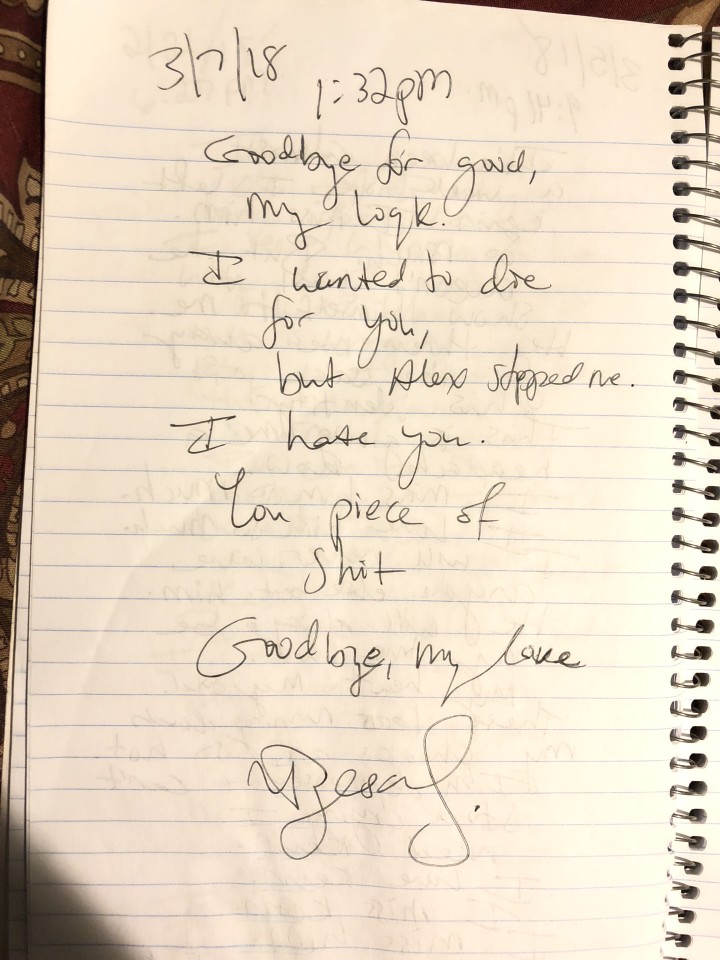 3/7/18
1:32pm
Goodbye for good,
my
I wanted to die
for you,
but Alex stopped me.
I hate you.
You piece of
shit
Goodbye, my love